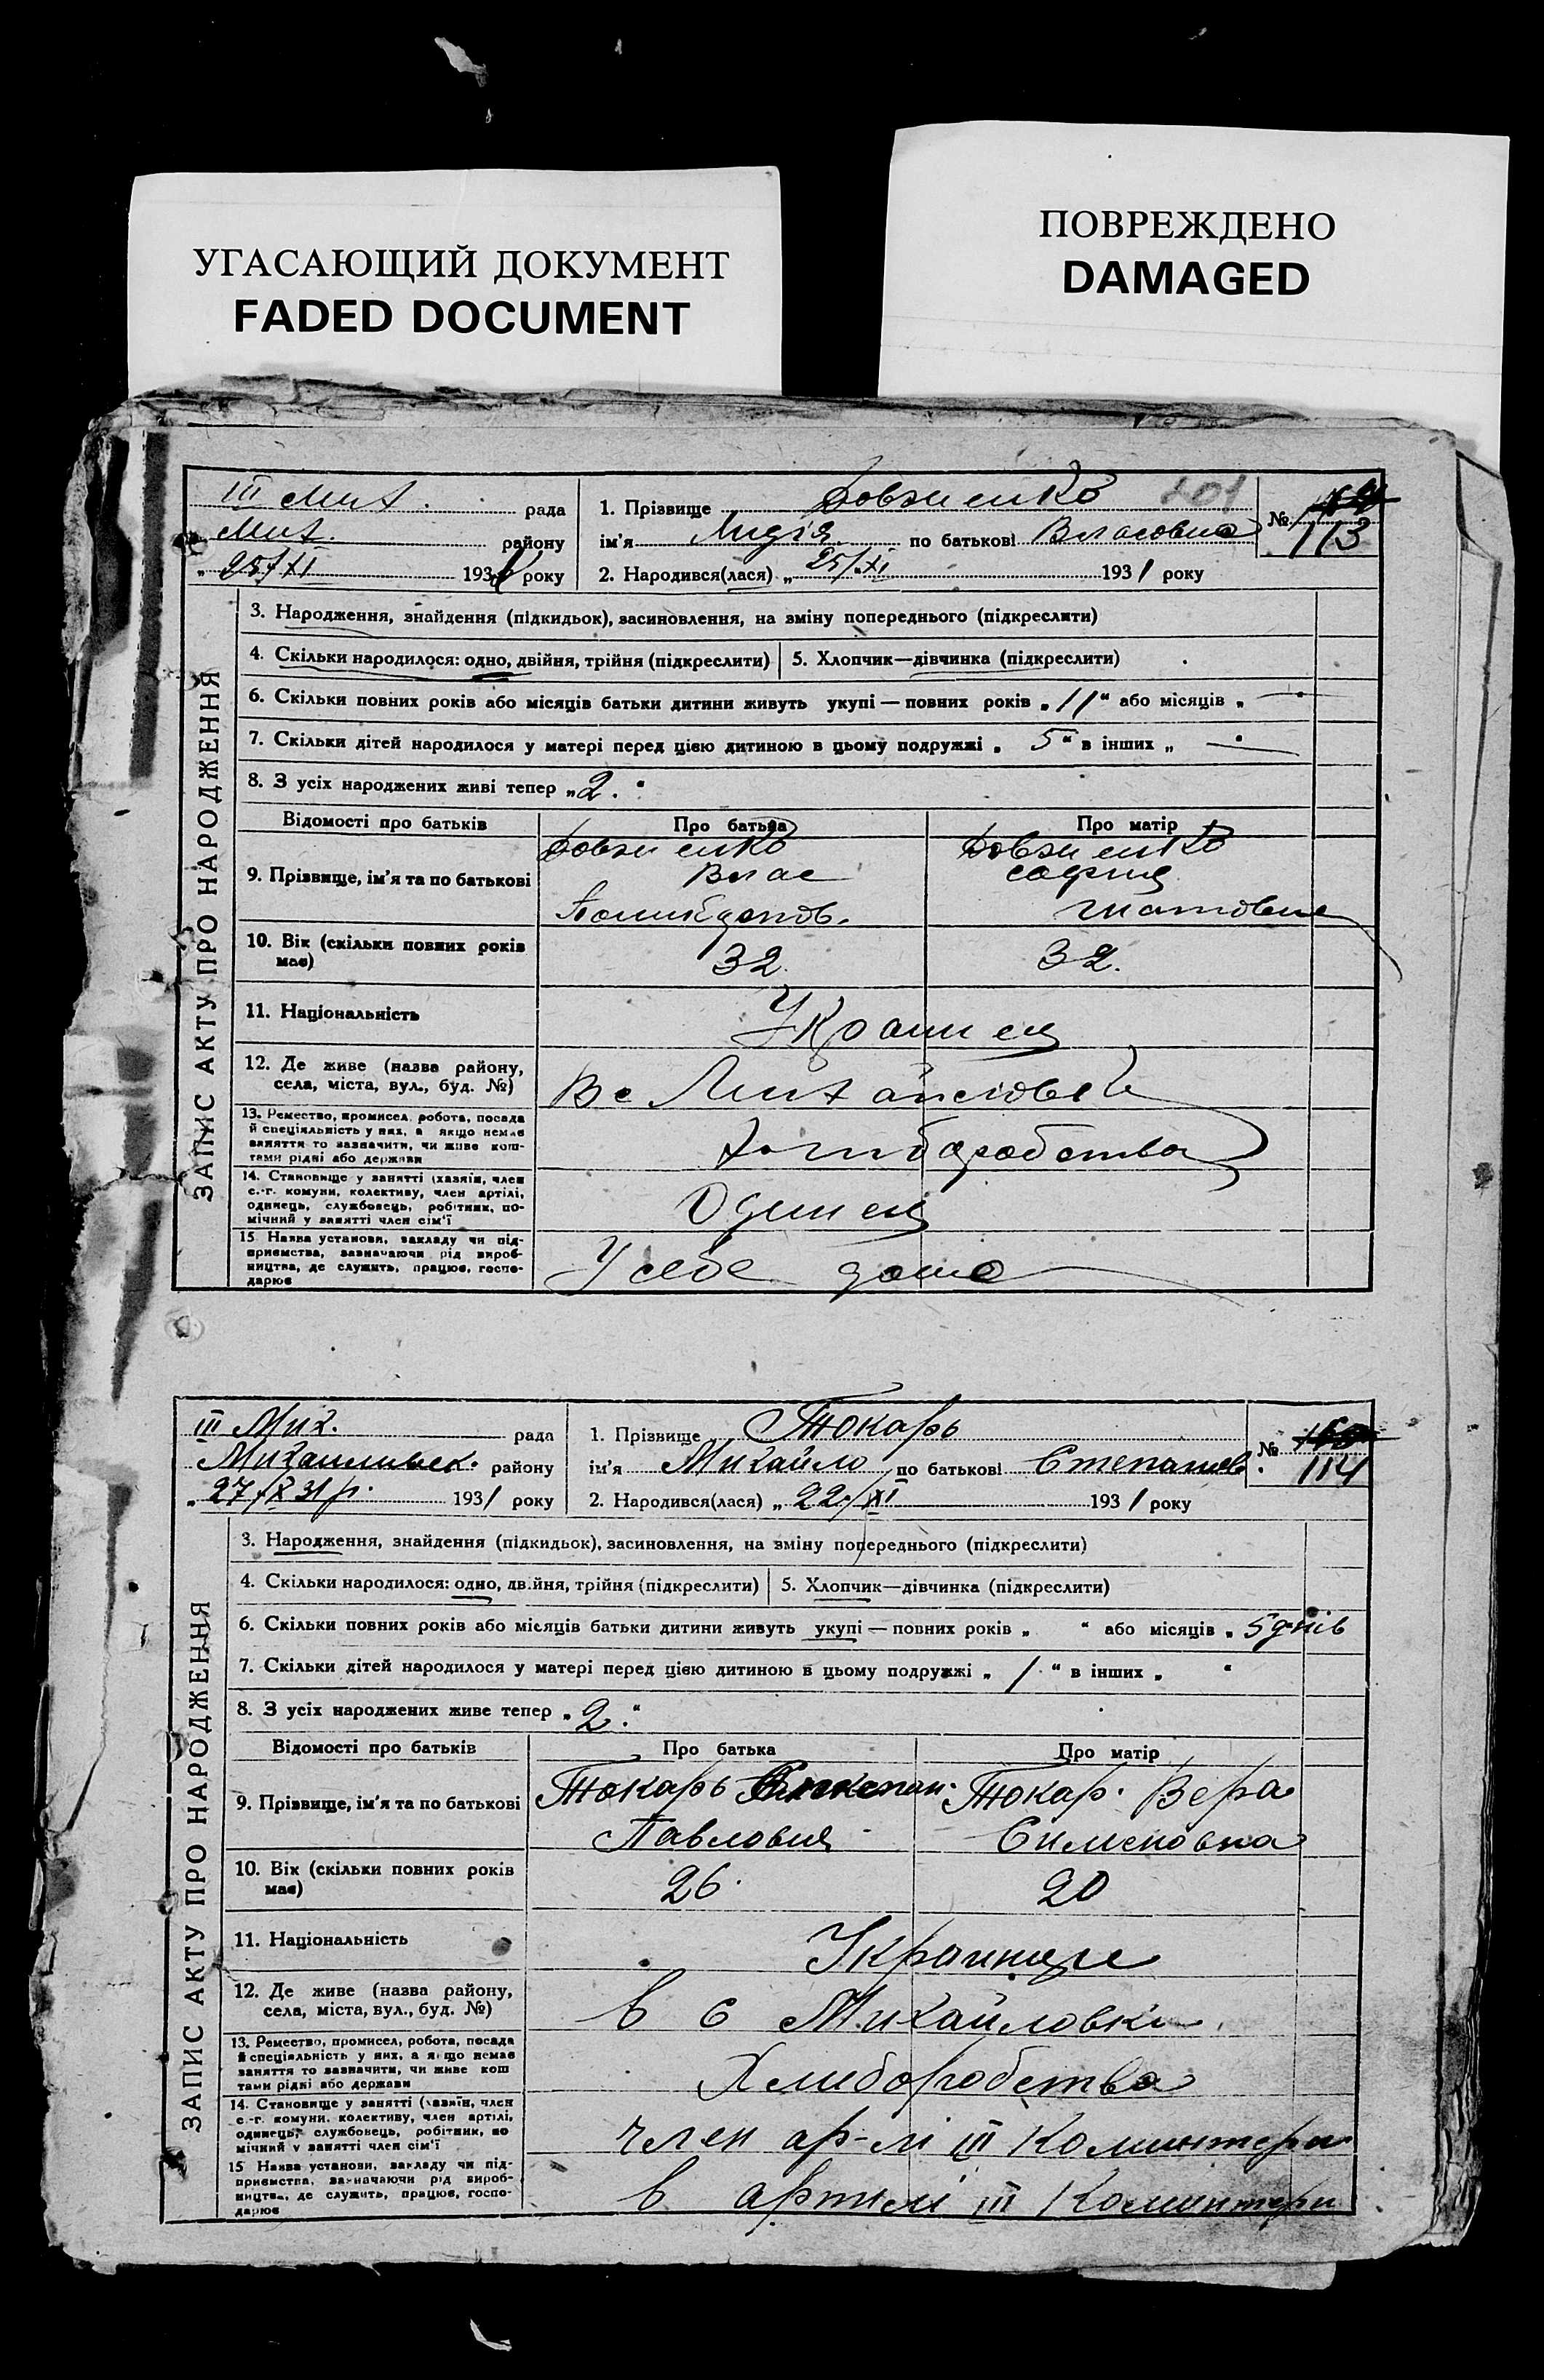 УГАСАЮЩИЙ ДОКУМЕНТ
FADED DOCUMENT
ПОВРЕЖДЕНО
DAMAGED
ЗАПИС АКТУ ПРО НАРОДЖЕННЯ
III Мих. рада
Мих. району
„ 25/XI 1931 року
1. Прізвище Довженко 101
ім'я Лидія по батькові Власовна
2. Народився(лася) „ 25/XI 1931 року
№ 113
3. Народження, знайдення (підкидьок), засиновлення, на зміну попереднього (підкреслити)
4. Скільки народилося: одно, двійня, трійня (підкреслити) 5. Хлопчик—дівчинка (підкреслити)
6. Скільки повних років або місяців батьки дитини живуть укупі — повних років „ 11 “ або місяців „ —
7. Скільки дітей народилося у матері перед цією дитиною в цьому подружжі „ 5 “ в інших „ — “
8. З усіх народжених живі тепер „ 2. “
Відомості про батьків Про батька Про матір
9. Прізвище, ім'я та по батькові
Довженко Довженко
Влас София
10. Вік (скільки повних років має) 32. 32.
11. Національність Украинец
12. Де живе (назва району, села, міста, вул., буд. №) Вс Михайловки
13. Ремество, промисел, робота, посада
й спеціяльність у них, а якщо немає
заняття то зазначити, чи живе кош-
тами рідні або держави
Хлиборобства
14. Становище у занятті (хазяїн, член
с.-г. комуни, колективу, член артілі,
одинець, службовець, робітник, по-
мічний у занятті член сім'ї
Одинец
15 Назва установи, закладу чи під-
приємства, зазначаючи рід вироб-
ництва, де служить, працює, госпо-
дарює
У себе дома
ЗАПИС АКТУ ПРО НАРОДЖЕННЯ
III Мих. рада
Михайливск. району
„ 27/X 31 р. 1931 року
1. Прізвище Токарь
ім'я Михайло по батькові Степанов.
2. Народився(лася) „ 22/XI 1931 року
№ 114
3. Народження, знайдення (підкидьок), засиновлення, на зміну попереднього (підкреслити)
4. Скільки народилося: одно, двійня, трійня (підкреслити) 5. Хлопчик—дівчинка (підкреслити)
6. Скільки повних років або місяців батьки дитини живуть укупі — повних років „ “ або місяців „ 5 днів
7. Скільки дітей народилося у матері перед цією дитиною в цьому подружжі „ 1 “ в інших „ “
8. З усіх народжених живе тепер „ 2. “
Відомості про батьків Про батька Про матір
9. Прізвище, ім'я та по батькові
Токарь Токар. Вера
Павлович Сименовна
10. Вік (скільки повних років має) 26. 20
11. Національність Украинци
12. Де живе (назва району, села, міста, вул., буд. №) в с Михайловки
13. Ремество, промисел, робота, посада
й спеціяльність у них, а якщо немає
заняття то зазначити, чи живе кош
тами рідні або держави
Хлиборобства
14. Становище у занятті (хазяїн, член
с.-г. комуни, колективу, член артілі,
одинець, службовець, робітник, по
мічний у занятті член сім'ї
член ар-лі III Коминтерн
15 Назва установи, закладу чи під-
приємства, зазначаючи рід вироб-
ництва, де служить, працює, госпо-
дарює
в артилі III Коминтерн